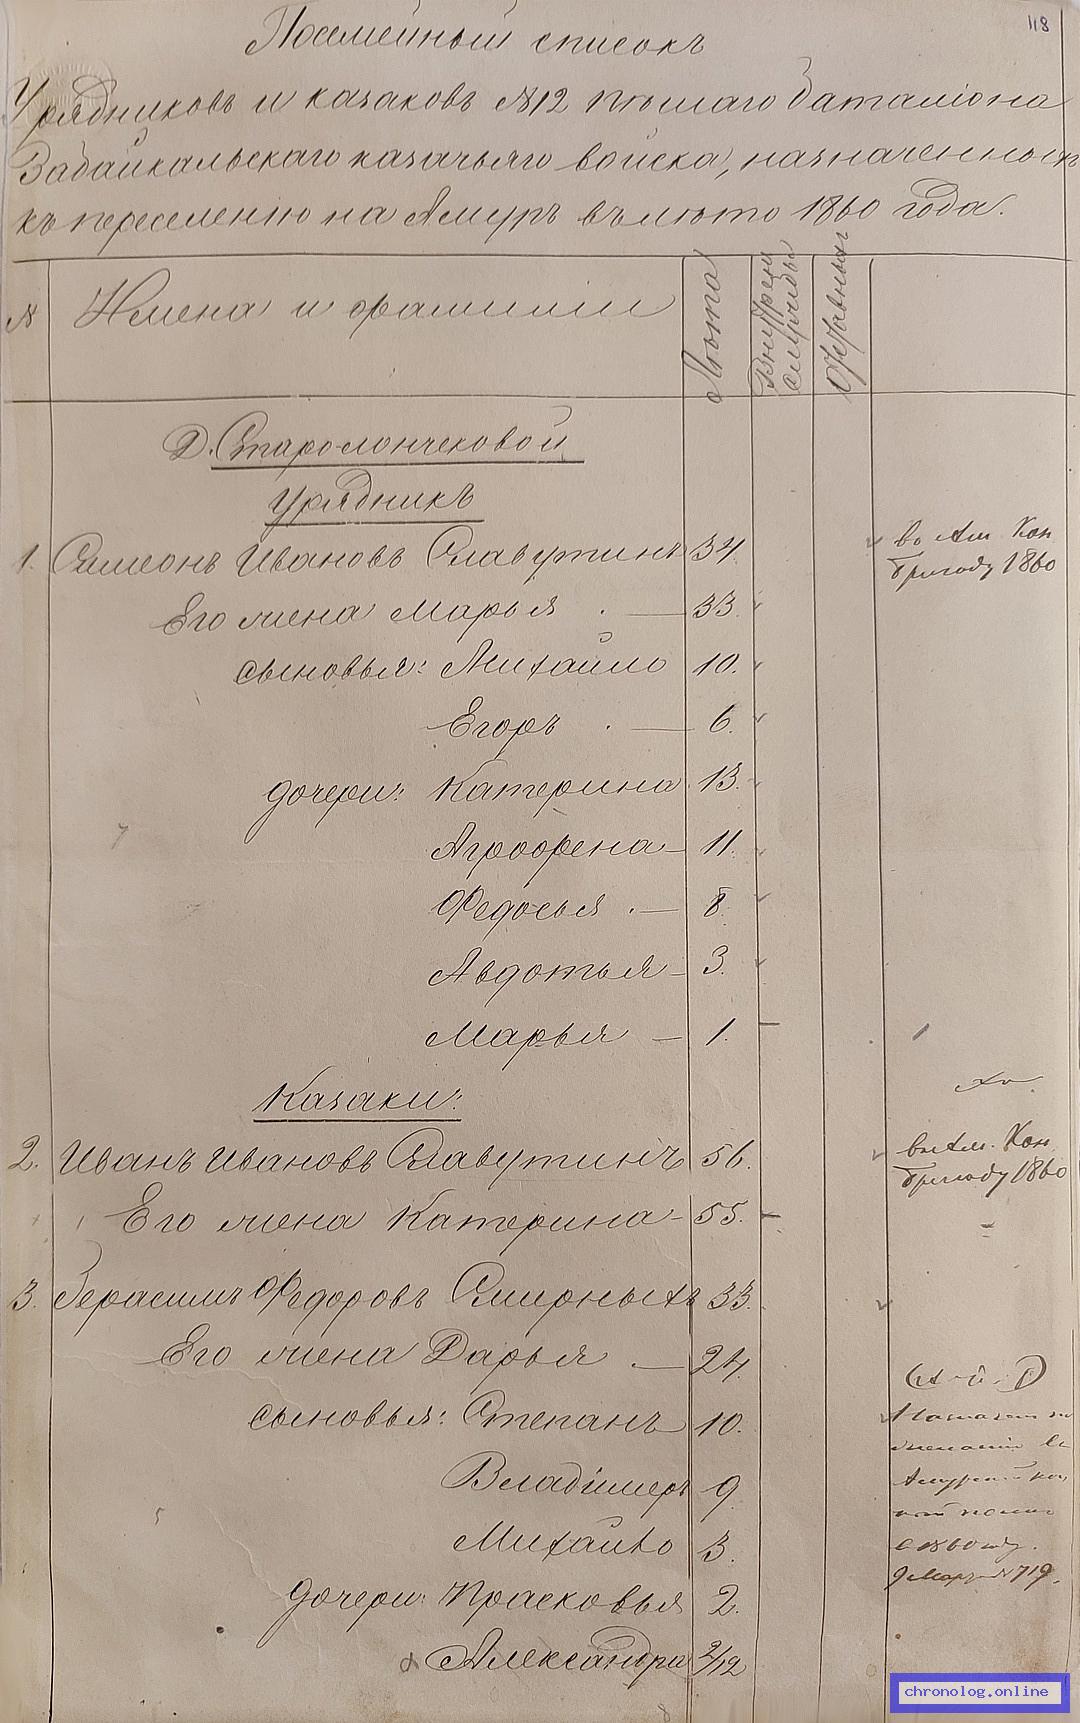 118
Посемейный списокъ
Урядниковъ и казаковъ №12 пѣшаго баталіона
Забайкальскаго казачьяго войска, назначенныхъ
къ переселенію на Амуръ въ лѣто 1860 года.
№ Имена и фамиліи Лѣта
Д. Старо-лончековой
Урядникъ
1. Симеонъ Ивановъ Славутинъ 34. во Ам. Кон
Его жена Марья 33. бригаду 1860
сыновья: Михайло 10.
Егоръ 6.
дочери: Катерина 13.
Агрофена 11.
Федосья 8.
Авдотья 3.
Марья 1.
Казаки:
2. Иванъ Ивановъ Славутинъ 56. въ Ам. Кон
Его жена Катерина 55. бригаду 1860
3. Герасимъ Федоровъ Смирныхъ 33.
Его жена Дарья 24.
сыновья: Степанъ 10.
Владимеръ 9.
Михайло 3.
дочери: Прасковья 2.
Александра 2/12
Амурской
1860 году.
9 Марта №719.
chronolog.online